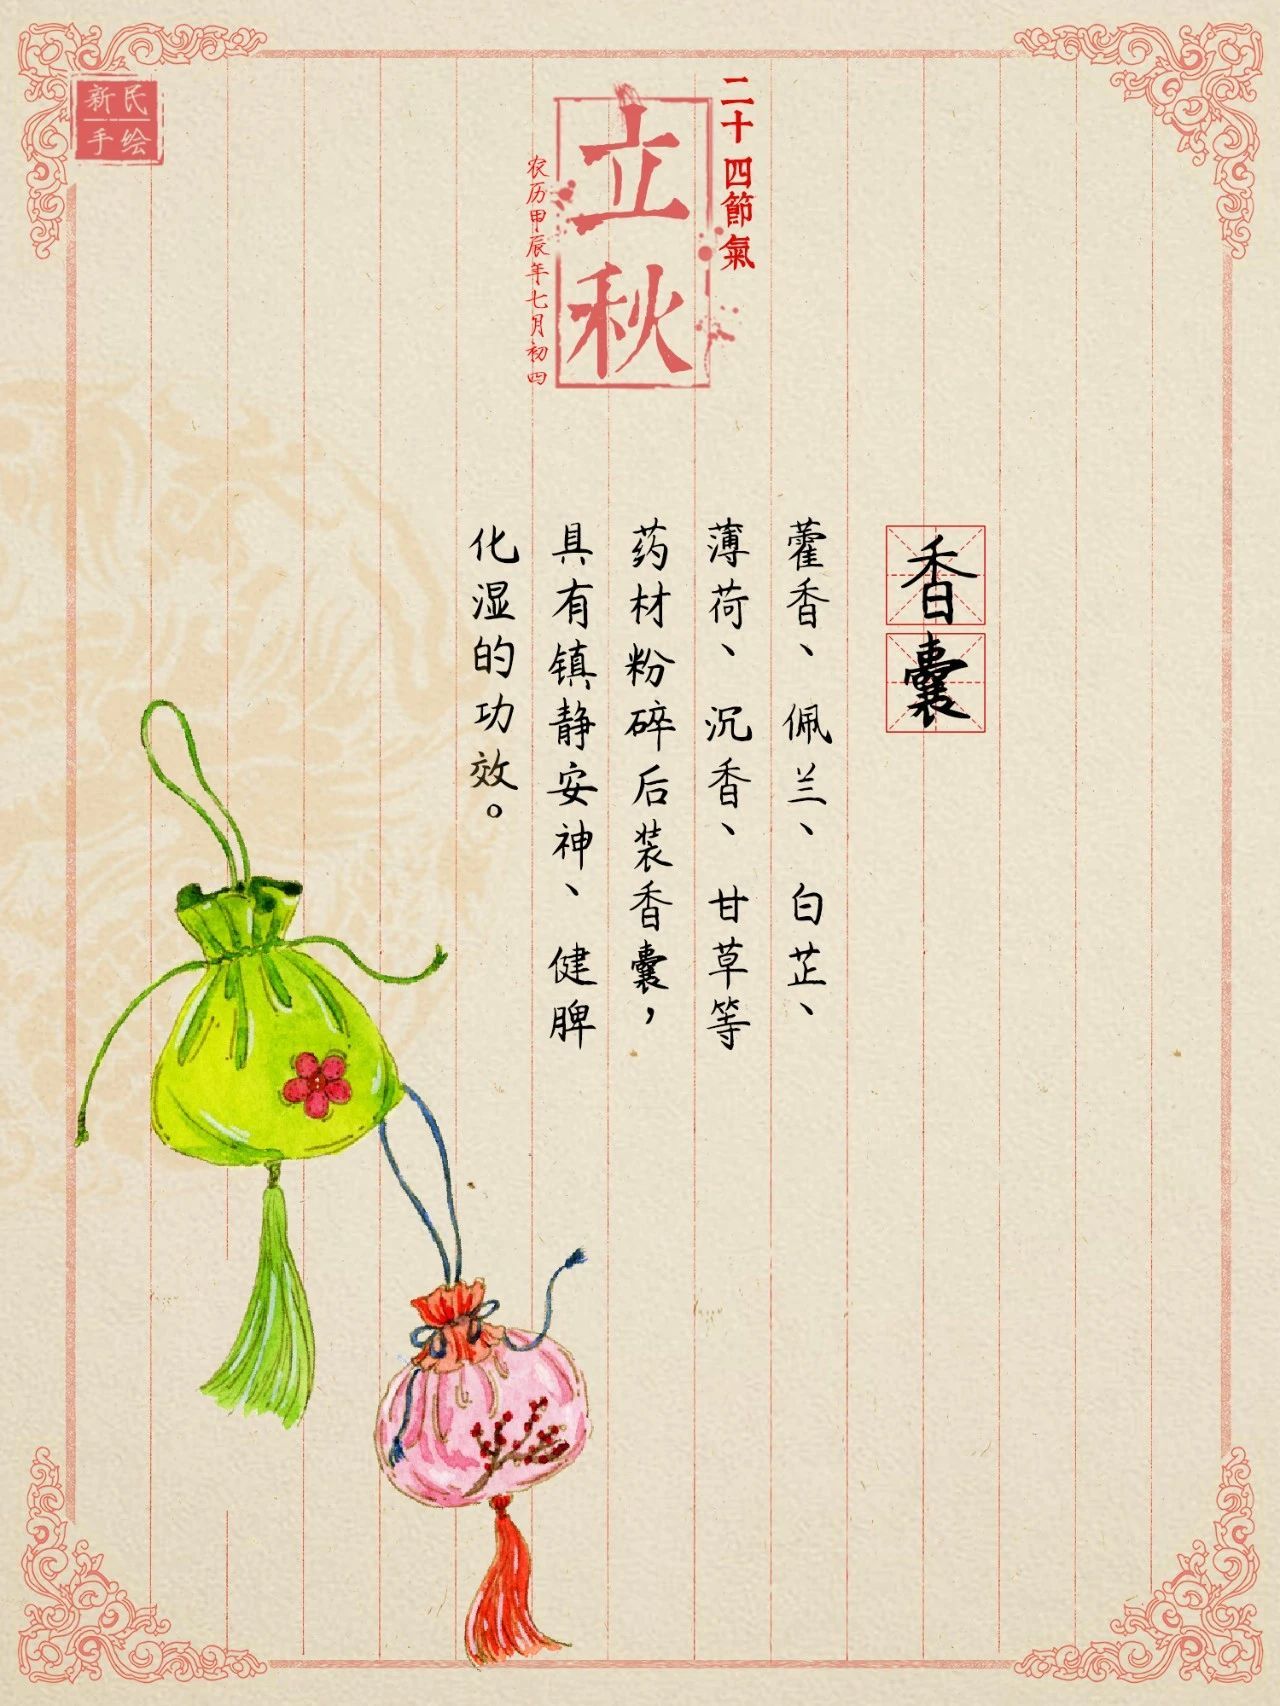 新民
手绘
二十四節氣
立秋
农历甲辰年七月初四
香囊
藿香、佩兰、白芷、
薄荷、沉香、甘草等
药材粉碎后装香囊，
具有镇静安神、健脾
化湿的功效。